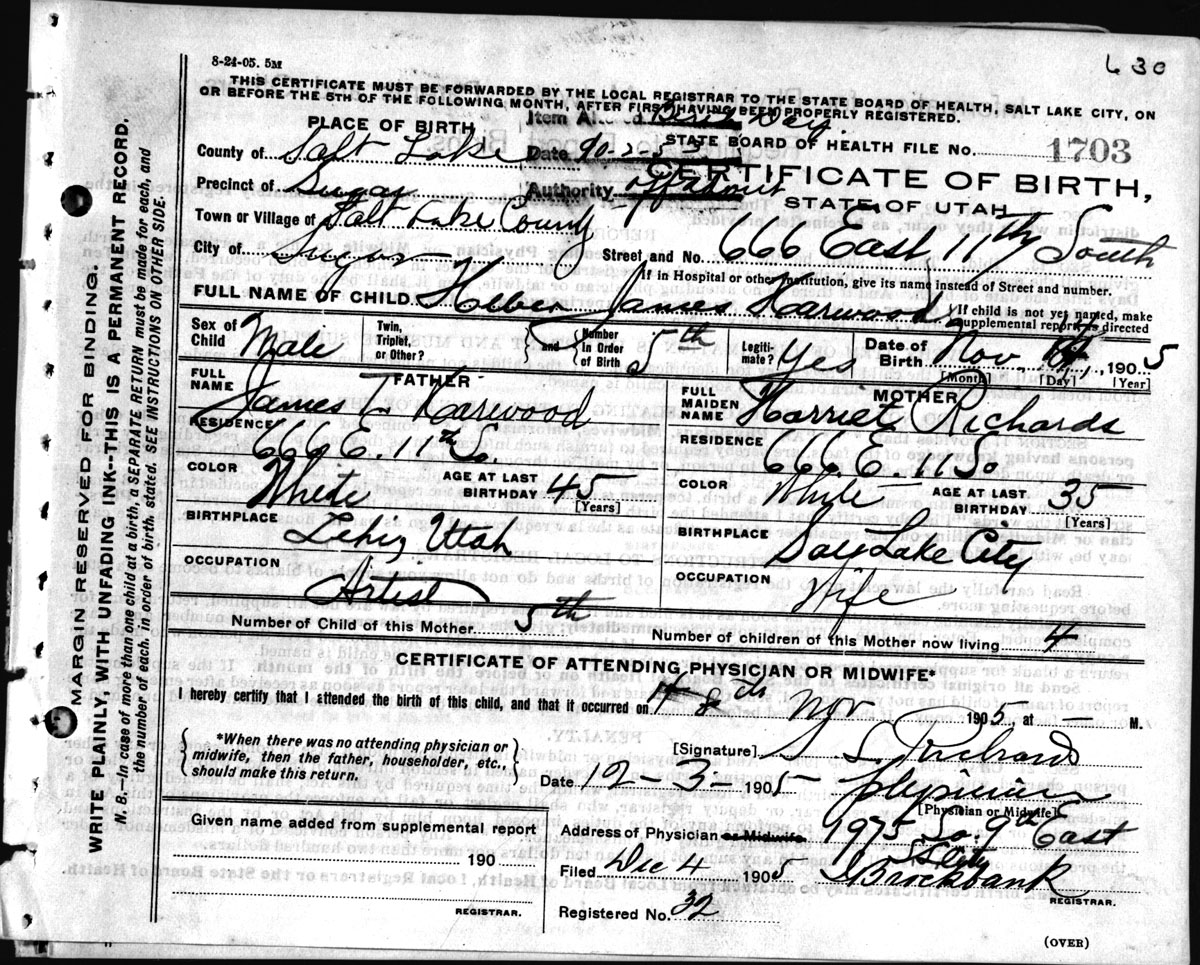 8-24-05. 5M
630
THIS CERTIFICATE MUST BE FORWARDED BY THE LOCAL REGISTRAR TO THE STATE BOARD OF HEALTH, SALT LAKE CITY, ON
OR BEFORE THE 5TH OF THE FOLLOWING MONTH, AFTER FIRST HAVING BEEN PROPERLY REGISTERED.
PLACE OF BIRTH
Item Altered Day
STATE BOARD OF HEALTH FILE NO. 1703
County of Salt Lake
Date
CERTIFICATE OF BIRTH,
Precinct of Sugar
Authority
STATE OF UTAH
Town or Village of Salt Lake County
City of Sugar
Street and No. 666 East 11th South
If in Hospital or other Institution, give its name instead of Street and number.
FULL NAME OF CHILD Heber James Harwood
If child is not yet named, make supplemental report as directed
Sex of Child Male
Twin, Triplet, or Other?
and
Number in Order of Birth 5th
Legitimate? Yes
Date of Birth Nov. 1905
[Month] [Day] [Year]
FATHER
FULL NAME James T Harwood
RESIDENCE 666 E. 11th So.
COLOR White
AGE AT LAST BIRTHDAY 45
[Years]
BIRTHPLACE Lehi, Utah
OCCUPATION Artist
MOTHER
FULL MAIDEN NAME Harriet Richards
RESIDENCE 666 E 11 So
COLOR White
AGE AT LAST BIRTHDAY 35
[Years]
BIRTHPLACE Salt Lake City
OCCUPATION Wife
Number of Child of this Mother 5th
Number of children of this Mother now living 4
CERTIFICATE OF ATTENDING PHYSICIAN OR MIDWIFE*
I hereby certify that I attended the birth of this child, and that it occurred on 18th Nov 1905, at — M.
*When there was no attending physician or
midwife, then the father, householder, etc.,
should make this return.
[Signature] S. L. Richards
Date 12-3- 1905 physician
[Physician or Midwife]
Given name added from supplemental report
190
REGISTRAR.
Address of Physician or Midwife 1975 So. 9th East
Filed Dec 4 1905
Brockbank
REGISTRAR.
Registered No. 32
(OVER)
MARGIN RESERVED FOR BINDING.
WRITE PLAINLY, WITH UNFADING INK--THIS IS A PERMANENT RECORD.
N. B.—In case of more than one child at a birth, a SEPARATE RETURN must be made for each, and
the number of each, in order of birth, stated. SEE INSTRUCTIONS ON OTHER SIDE.